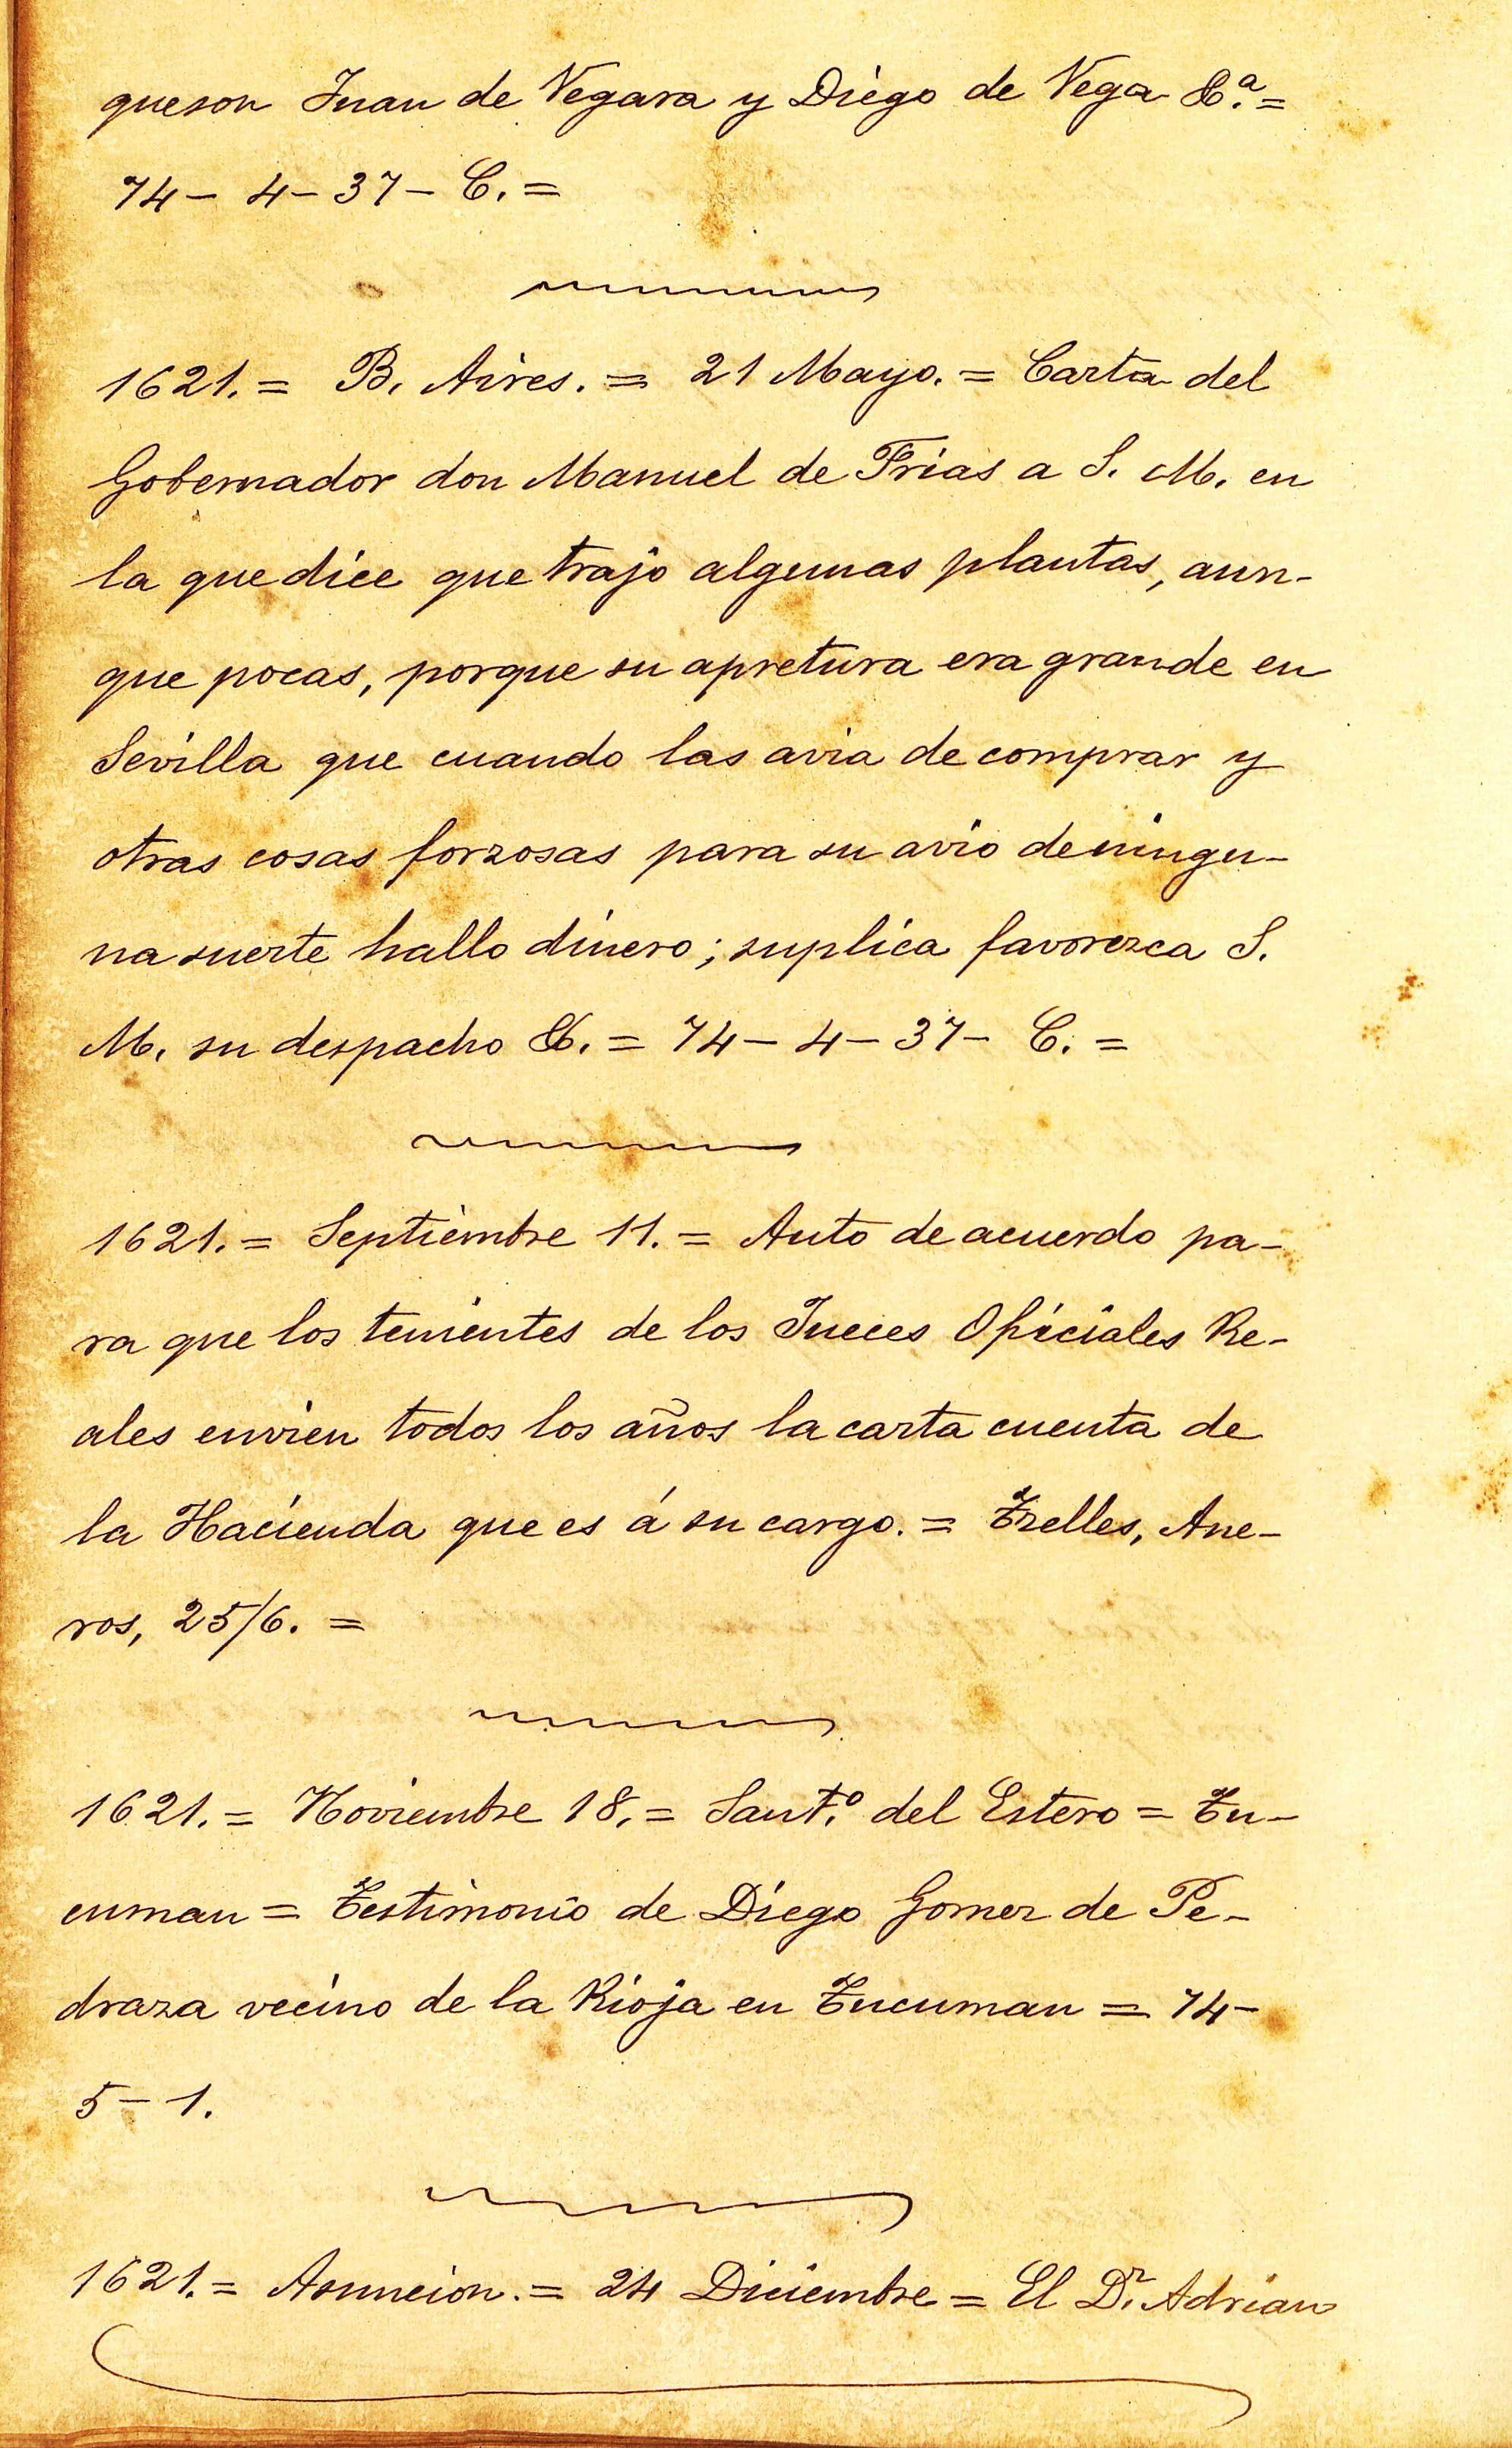 que son Juan de Vegara y Diego de Vega &.ª =
74 - 4 - 37 - C. =
1621. = B. Aires. = 21 Mayo. = Carta del
Gobernador don Manuel de Frias a S. M. en
la que dice que trajo algunas plantas, aun-
que pocas, porque su apretura era grande en
Sevilla que cuando las avia de comprar y
otras cosas forzosas para su avio de ningu-
na suerte hallo dinero; suplica favorezca S.
M. su despacho &. = 74 - 4 - 37 - C. =
1621. = Septiembre 11. = Auto de acuerdo pa-
ra que los tenientes de los Jueces Oficiales Re-
ales envien todos los años la carta cuenta de
la Hacienda que es á su cargo. = Trelles, Ane-
ros, 25/6. =
1621. = Noviembre 18. = Sant.º del Estero = Tu-
cuman = Testimonio de Diego Gomez de Pe-
draza vecino de la Rioja en Tucuman = 74 -
5 - 1.
1621. = Asuncion. = 24 Diciembre = El D.r Adrian